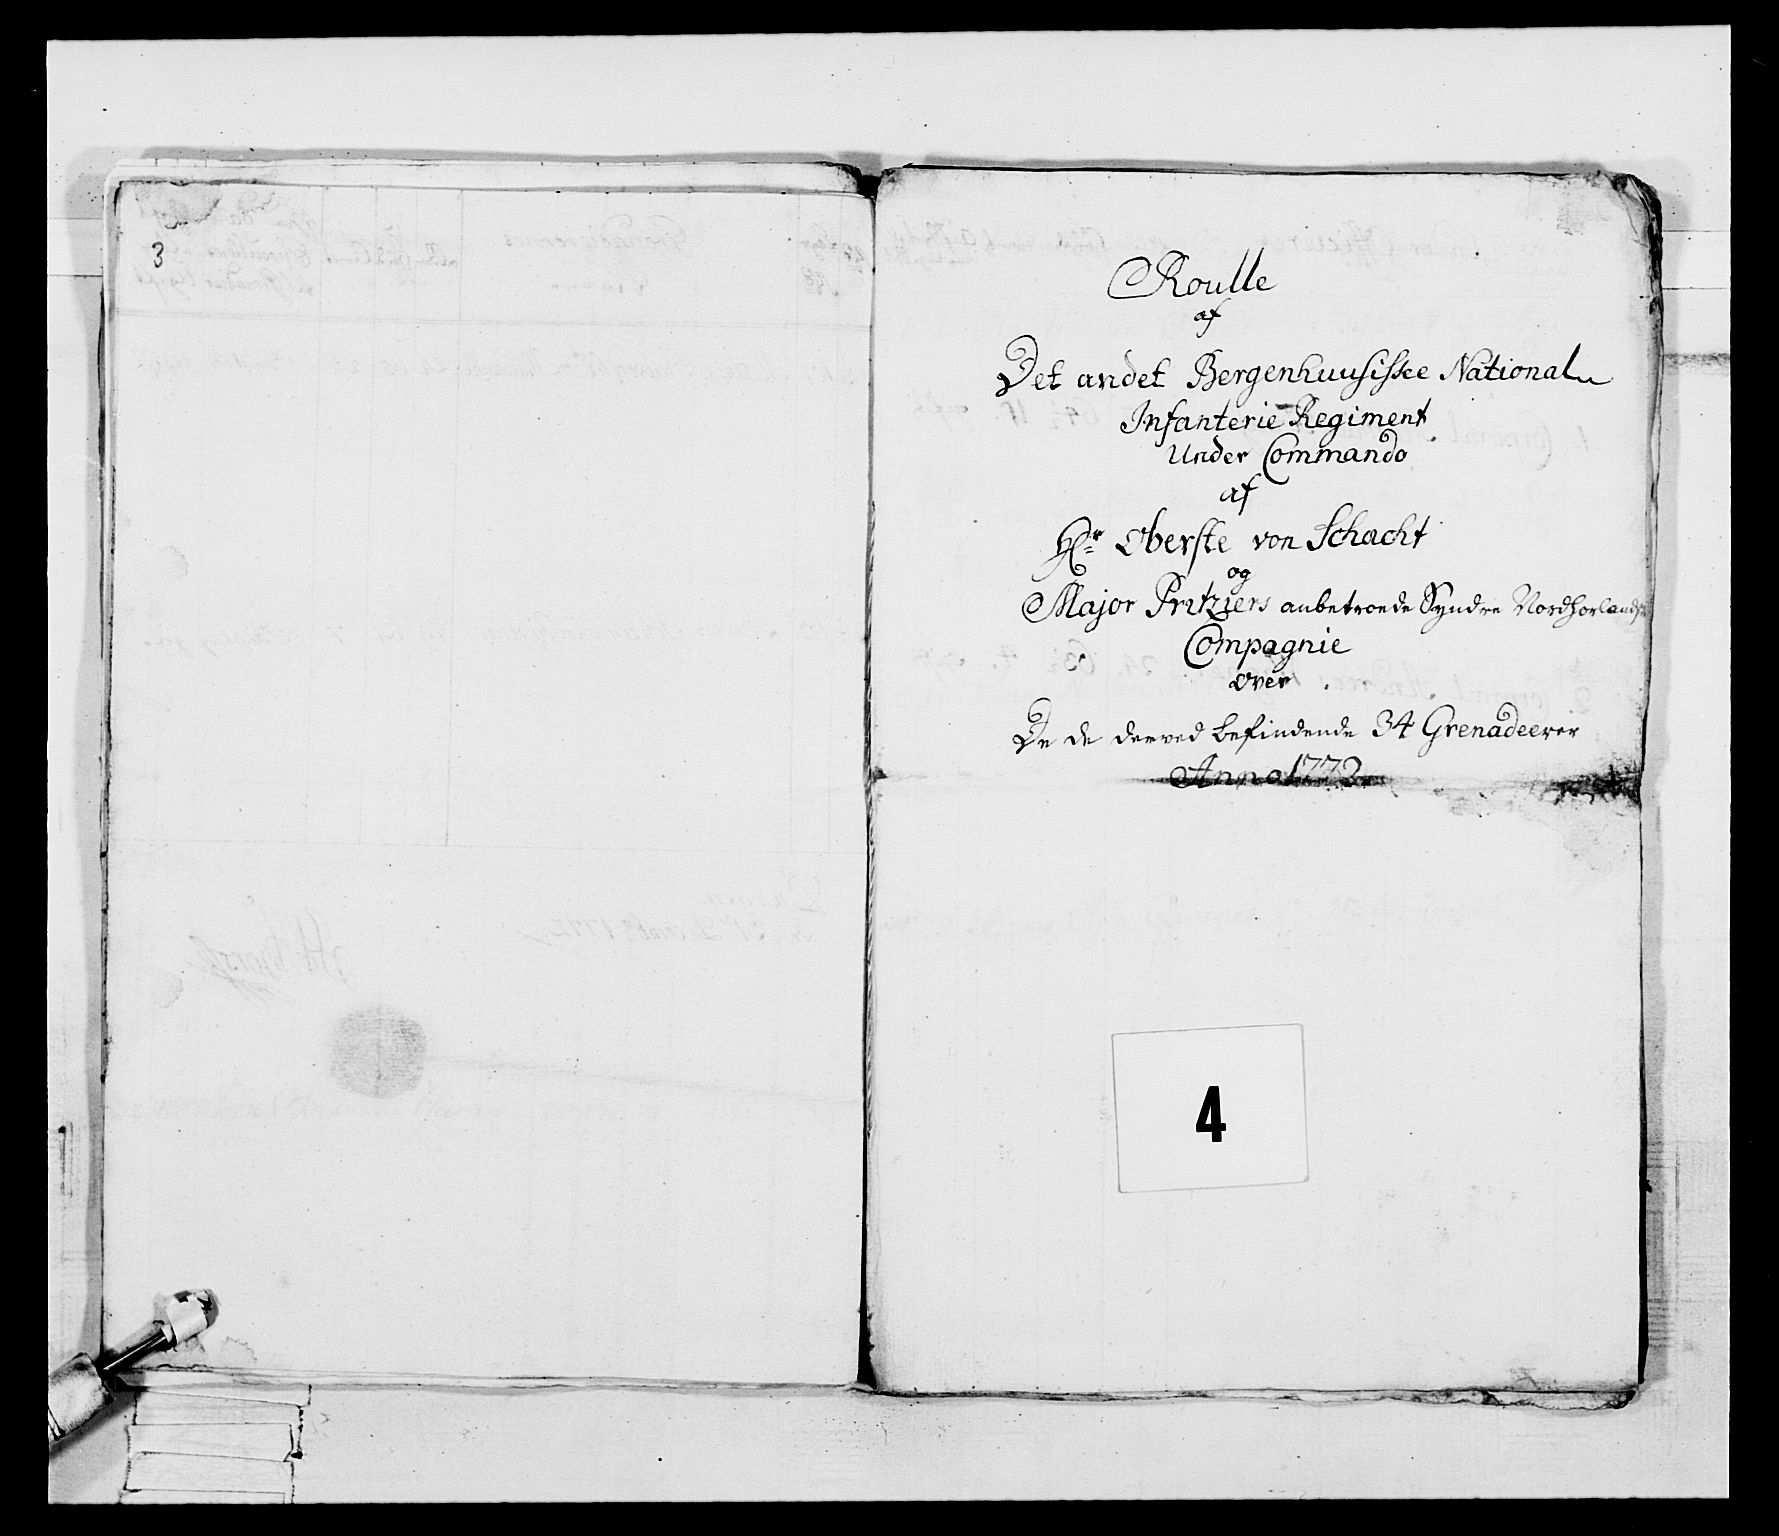 3
Roulle
af
Det andet Bergenhuusiske National
Infanterie Regiment
Under Commando
af
Hr Oberste von Schacht
og
Major Pritziers anbetroede Syndre Nordhorlandske
Compagnie
over
De de derved befindende 34 Grenadeerer
Anno 1772
4